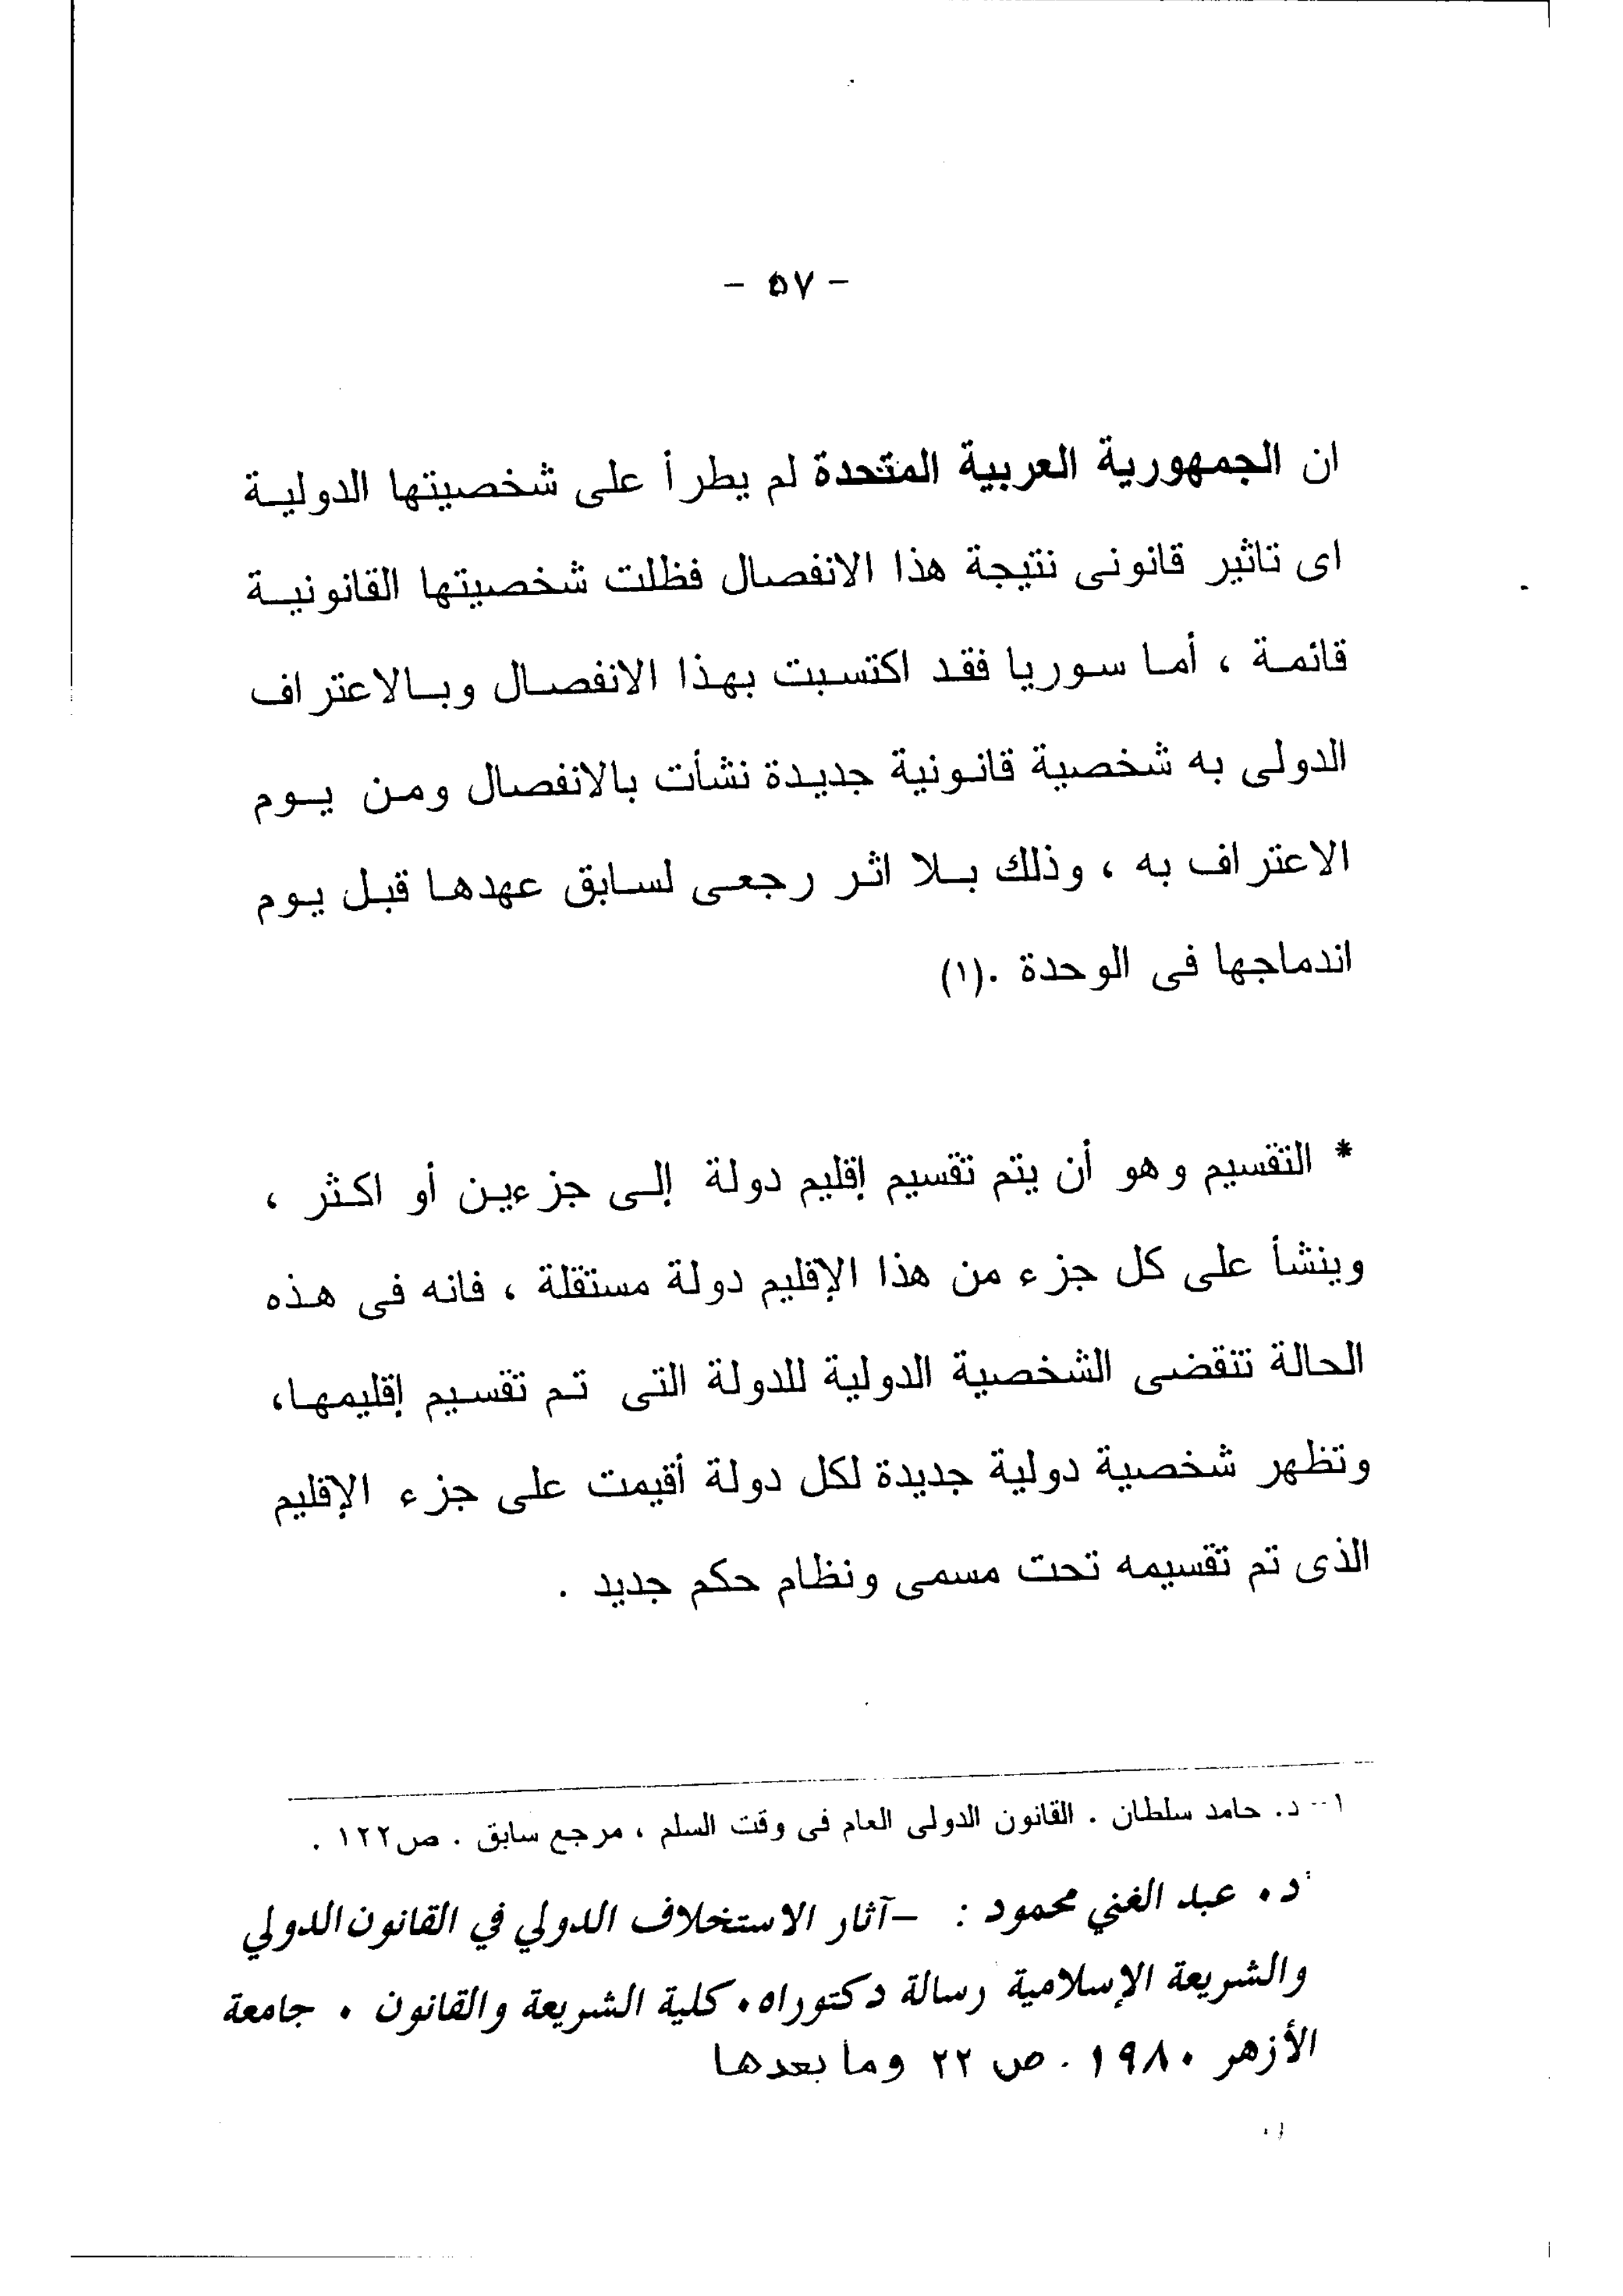 - ٥٧ -
ان الجمهورية العربية المتحدة لم يطرأ على شخصيتها الدولية
اى تاثير قانونى نتيجة هذا الانفصال فظلت شخصيتها القانونية
قائمة ، أما سوريا فقد اكتسبت بهذا الانفصال وبالاعتراف
الدولى به شخصية قانونية جديدة نشأت بالانفصال ومن يوم
الاعتراف به ، وذلك بلا اثر رجعى لسابق عهدها قبل يوم
اندماجها فى الوحدة .(١)
* التقسيم وهو أن يتم تقسيم إقليم دولة إلى جزءين أو اكثر ،
وينشأ على كل جزء من هذا الإقليم دولة مستقلة ، فانه فى هذه
الحالة تنقضى الشخصية الدولية للدولة التى تم تقسيم إقليمها،
وتظهر شخصية دولية جديدة لكل دولة أقيمت على جزء الإقليم
الذى تم تقسيمه تحت مسمى ونظام حكم جديد .
١- د. حامد سلطان . القانون الدولى العام فى وقت السلم ، مرجع سابق . ص١٢٢ .
د. عبد الغني محمود : -آثار الاستخلاف الدولي في القانون الدولي
والشريعة الإسلامية رسالة دكتوراه. كلية الشريعة والقانون . جامعة
الأزهر ١٩٨٠ . ص ٢٢ وما بعدها